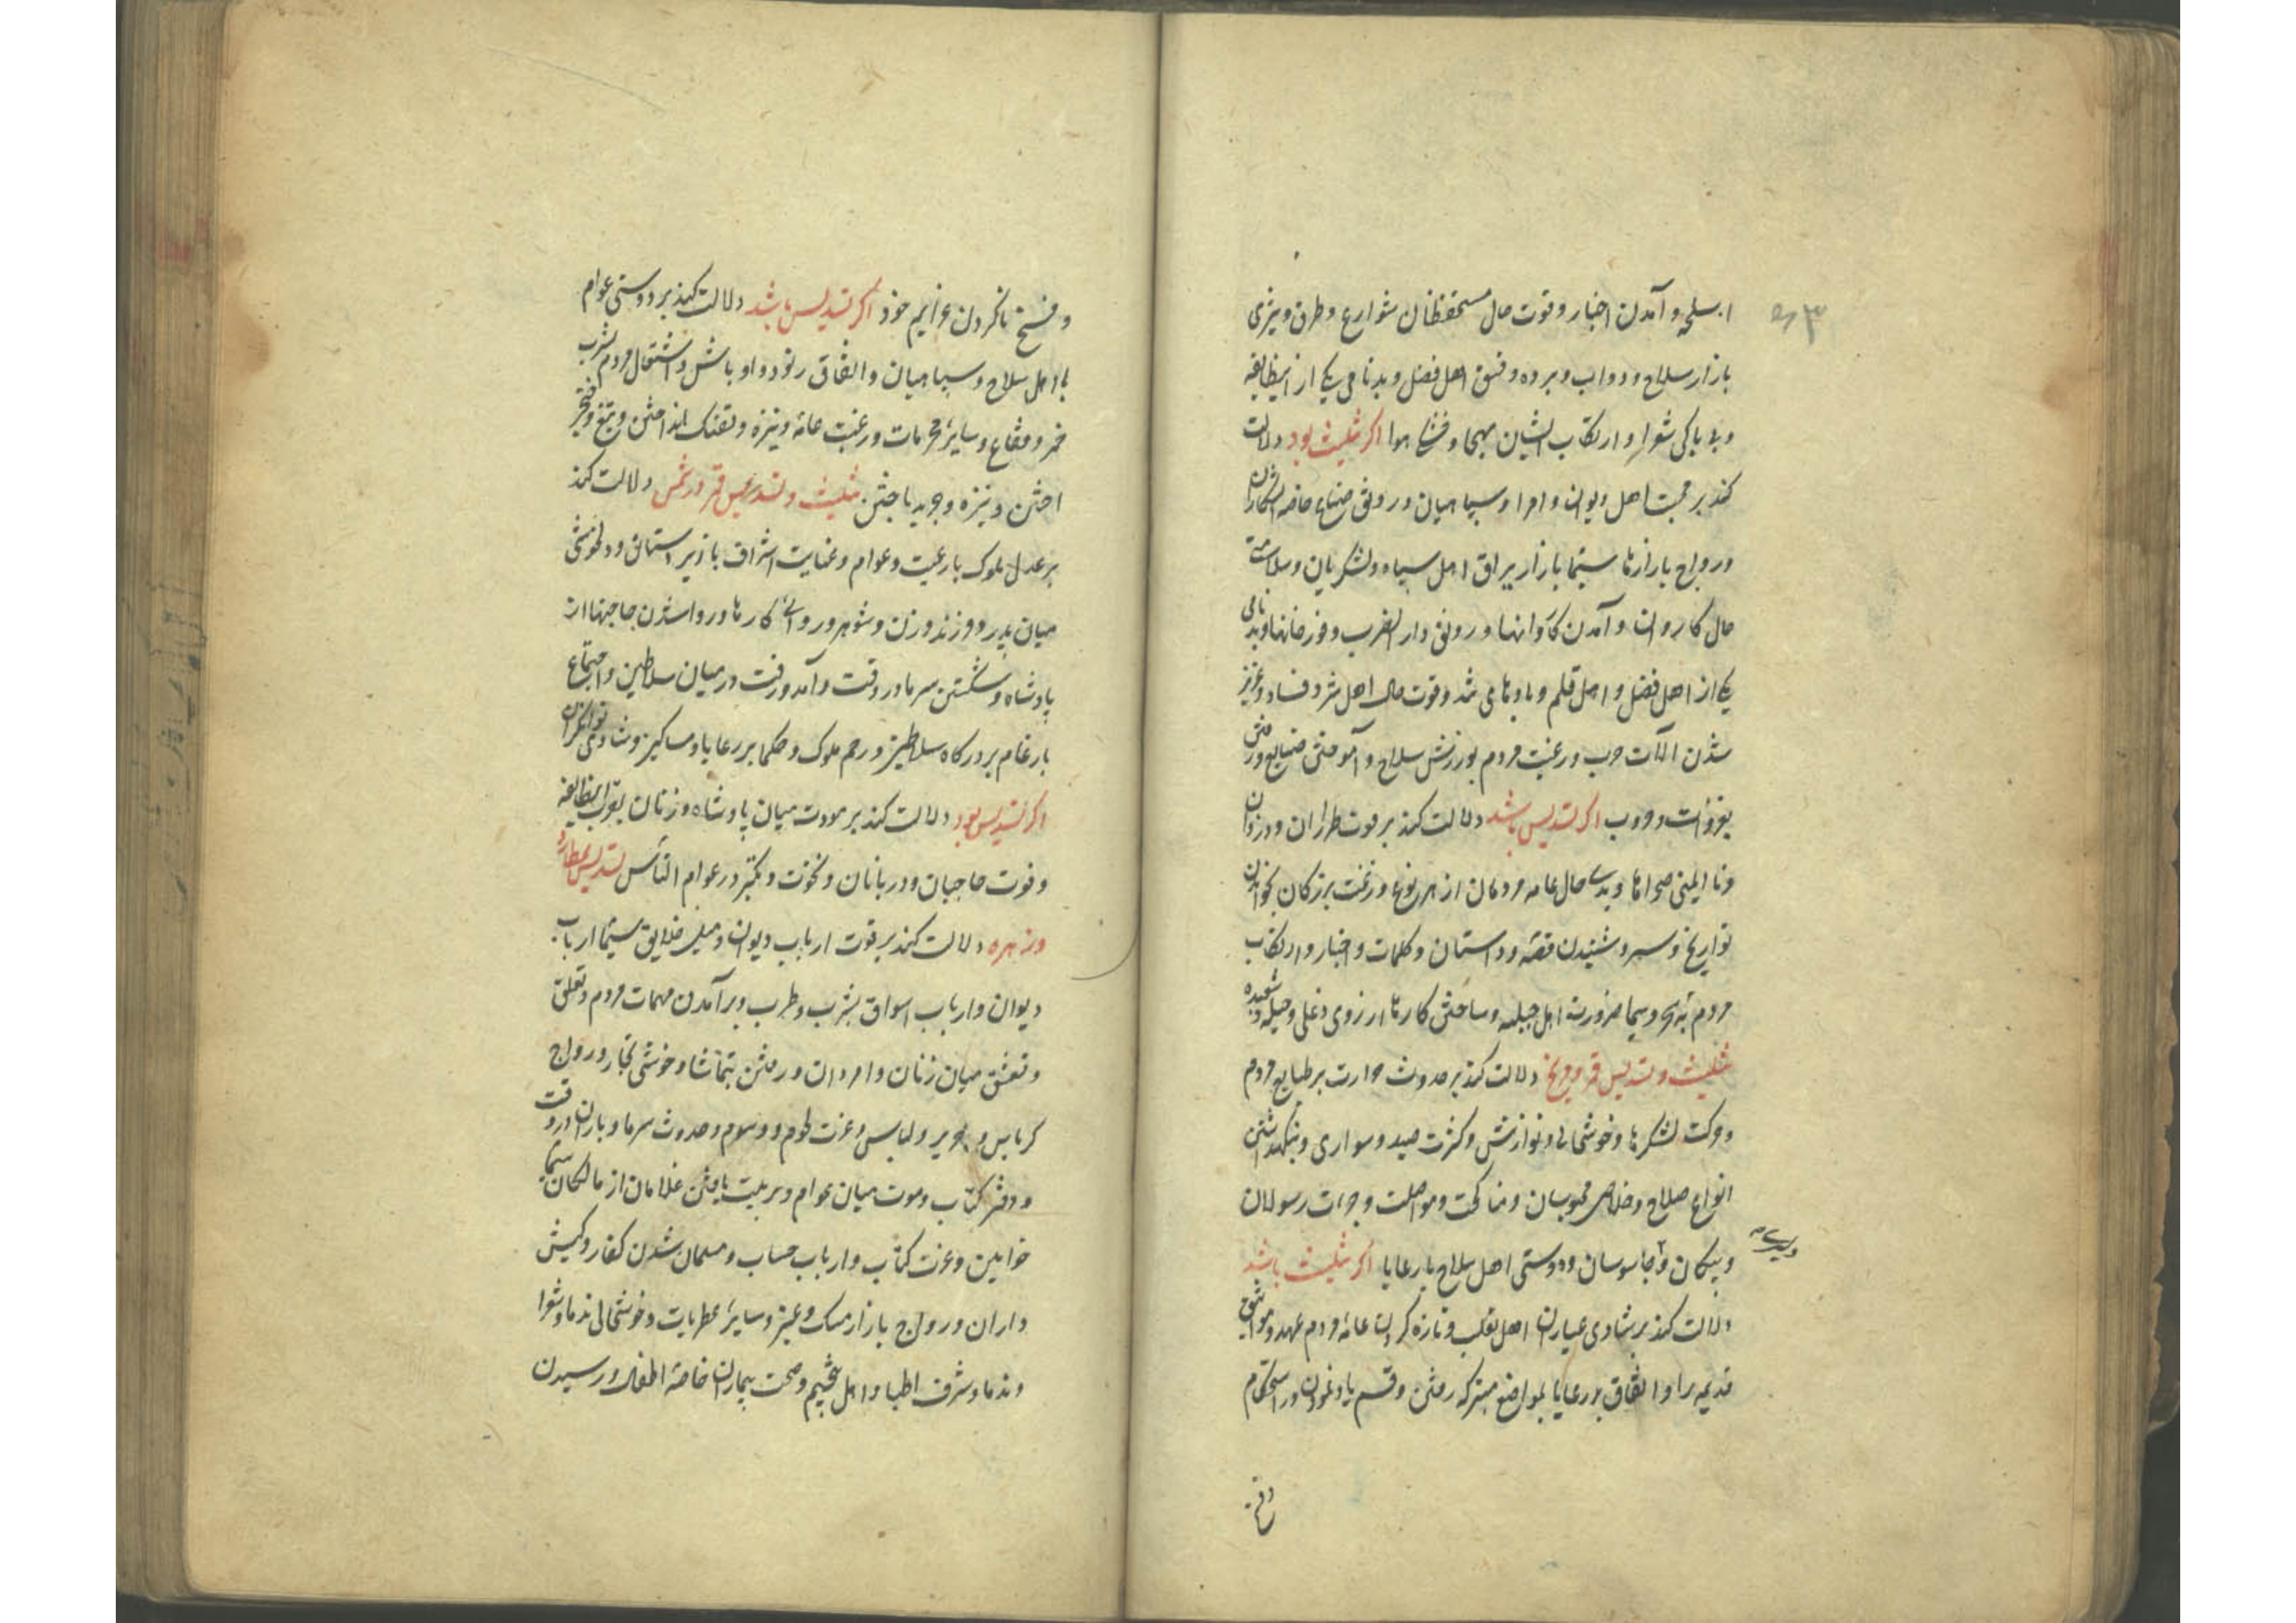 اسلحه و آمدن اخبار و قوت حال مستحفظان شوارع و طرق و تیزی
بازار سلاح و دواب و برده و فسق اهل فضل و بدنامی یکی از اینطایفه
و بی باکی شعرا و ارتکاب ایشان بهجا و فسخ هوا اکر تثلیث بود دلالت
کند بر محبت اهل دیوان و امرا و سپاهیان و رونق صناع خاصه
و رواج بازارها سیما بازار یراق اهل سپاه و لشکریان و سلامت
حال کاروان و آمدن کاروانها و رونق دار الضرب و قورخانها و بدنامی
یکی از اهل فضل و اهل قلم و قوت حال اهل شر و فساد و عزیز
شدن آلات حرب و رغبت مردم بورزش سلاح و آموختن صنایع و رفتن
بغزوات و حروب اکر تسدیس باشد دلالت کند بر قوت طراران و دزدان
و نا ایمنی صحراها و بدی حال عامه مردمان از هر نوع و رغبت بزرکان بخواندن
تواریخ و سیر و شنیدن قصه و داستان و کلمات و اخبار و ارتکاب
مردم و ساختن کارها از روی دغلی و حیله و شعبده
تثلیث و تسدیس قمر و مریخ دلالت کند بر حدوث حرارت بر طبایع مردم
و حرکت لشکرها و خوشحالی و نوازش و کثرت صید و سواری و نیکو داشتن
انواع صلاح و خلاص محبوسان و مناکحت و مواصلت و جرات رسولان
و پیکان و جاسوسان و دوستی اهل سلاح با رعایا اکر تثلیث باشد
دلالت کند بر شادی عیاران اهل تغلب و تازه کردن عامه مردم عهد و مواثیق
قدیمه را و اتفاق بر رعایا بمواضع متبرکه رفتن و قسم یاد نمودن و در استحکام
و فسخ
و فسخ ناکردن عزایم خود اکر تسدیس باشد دلالت کند بر دوستی عوام
با اهل سلاح و سپاهیان و اتفاق رنود و اوباش و اشتغال مردم بشرب
خمر و فقاع و سایر محرمات و رغبت عامه و نیزه و تفنک انداختن و تیغ و خنجر
اختن و نیزه و جرید باختن تثلیث و تسدیس قمر و شمس دلالت کند
بر عدل ملوک با رعیت و عوام و عنایت اشراف با زیردستان و دلخوشی
میان پدر و فرزند و زن و شوهر و روائی کارها و روا شدن حاجتها از
پادشاه و شکستن سرما در وقت و آمد و رفت در میان سلاطین و اجتماع
بار عام بر درکاه سلاطین و رحم ملوک و حکما بر رعایا و مساکین و شادی توانکران
اکر تسدیس بود دلالت کند بر مودت میان پادشاه و زنان بقرب اینطایفه
و قوت حاجبان و دربانان و نخوت و تکبر در عوام الناس تسدیس عطارد
و زهره دلالت کند بر قوت ارباب دیوان و میل خلایق سیما ارباب
دیوان و ارباب اسواق بشرب و طرب و برآمدن مهمات مردم و تعلق
و تعشق میان زنان و امردان و رفتن بتماشا و خوشی تجار و رواج
کرباس و حریر و لباس و عزت لحوم و دسوم و حدوث سرما و باران در وقت
و دفتر کتاب و موت میان عوام و تربیت یافتن غلامان از مالکان سیما
خواتین و عزت کتاب و ارباب حساب و مسلمان شدن کفار و کیش
داران و رواج بازار مسک و عنبر و سایر عطریات و خوشحالی ندما و شعرا
و ندما و شرف اطبا و اهل تنجیم و صحت بیماران خاصه اطفال و رسیدن